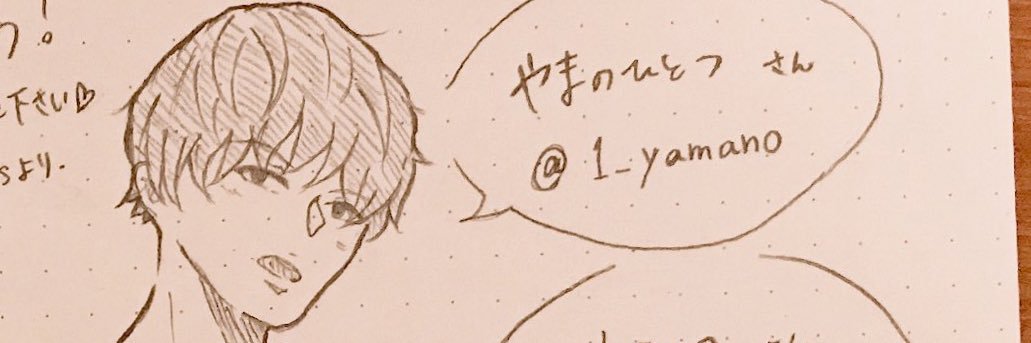 ！
下さい♡
より.
やまのひとつ さん
@1_yamano